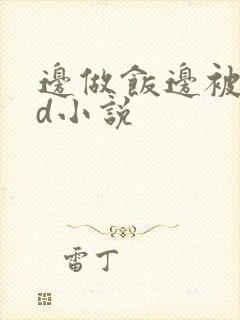 邊做飯邊被
d小說
雷丁